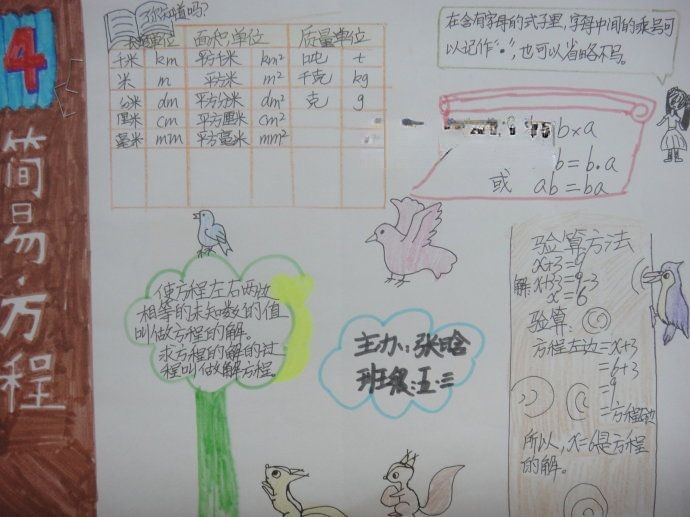 4
简易方程
你知道吗?
长度单位 面积单位 质量单位
千米 km 平方千米 km² 吨 t
米 m 平方米 m² 千克 kg
分米 dm 平方分米 dm² 克 g
厘米 cm 平方厘米 cm²
毫米 mm 平方毫米 mm²
在含有字母的式子里,字母中间的乘号可
以记作“•”,也可以省略不写。
b×a
b=b·a
或 ab=ba
使方程左右两边
相等的未知数的值
叫做方程的解。
求方程的解的过
程叫做解方程。
主办:张晗
班级:五·三
验算方法
x+3=9
解 x+3=9-3
x=6
验算:
方程左边=x+3
=6+3
=9
=方程右边
所以,x=6是方程
的解。